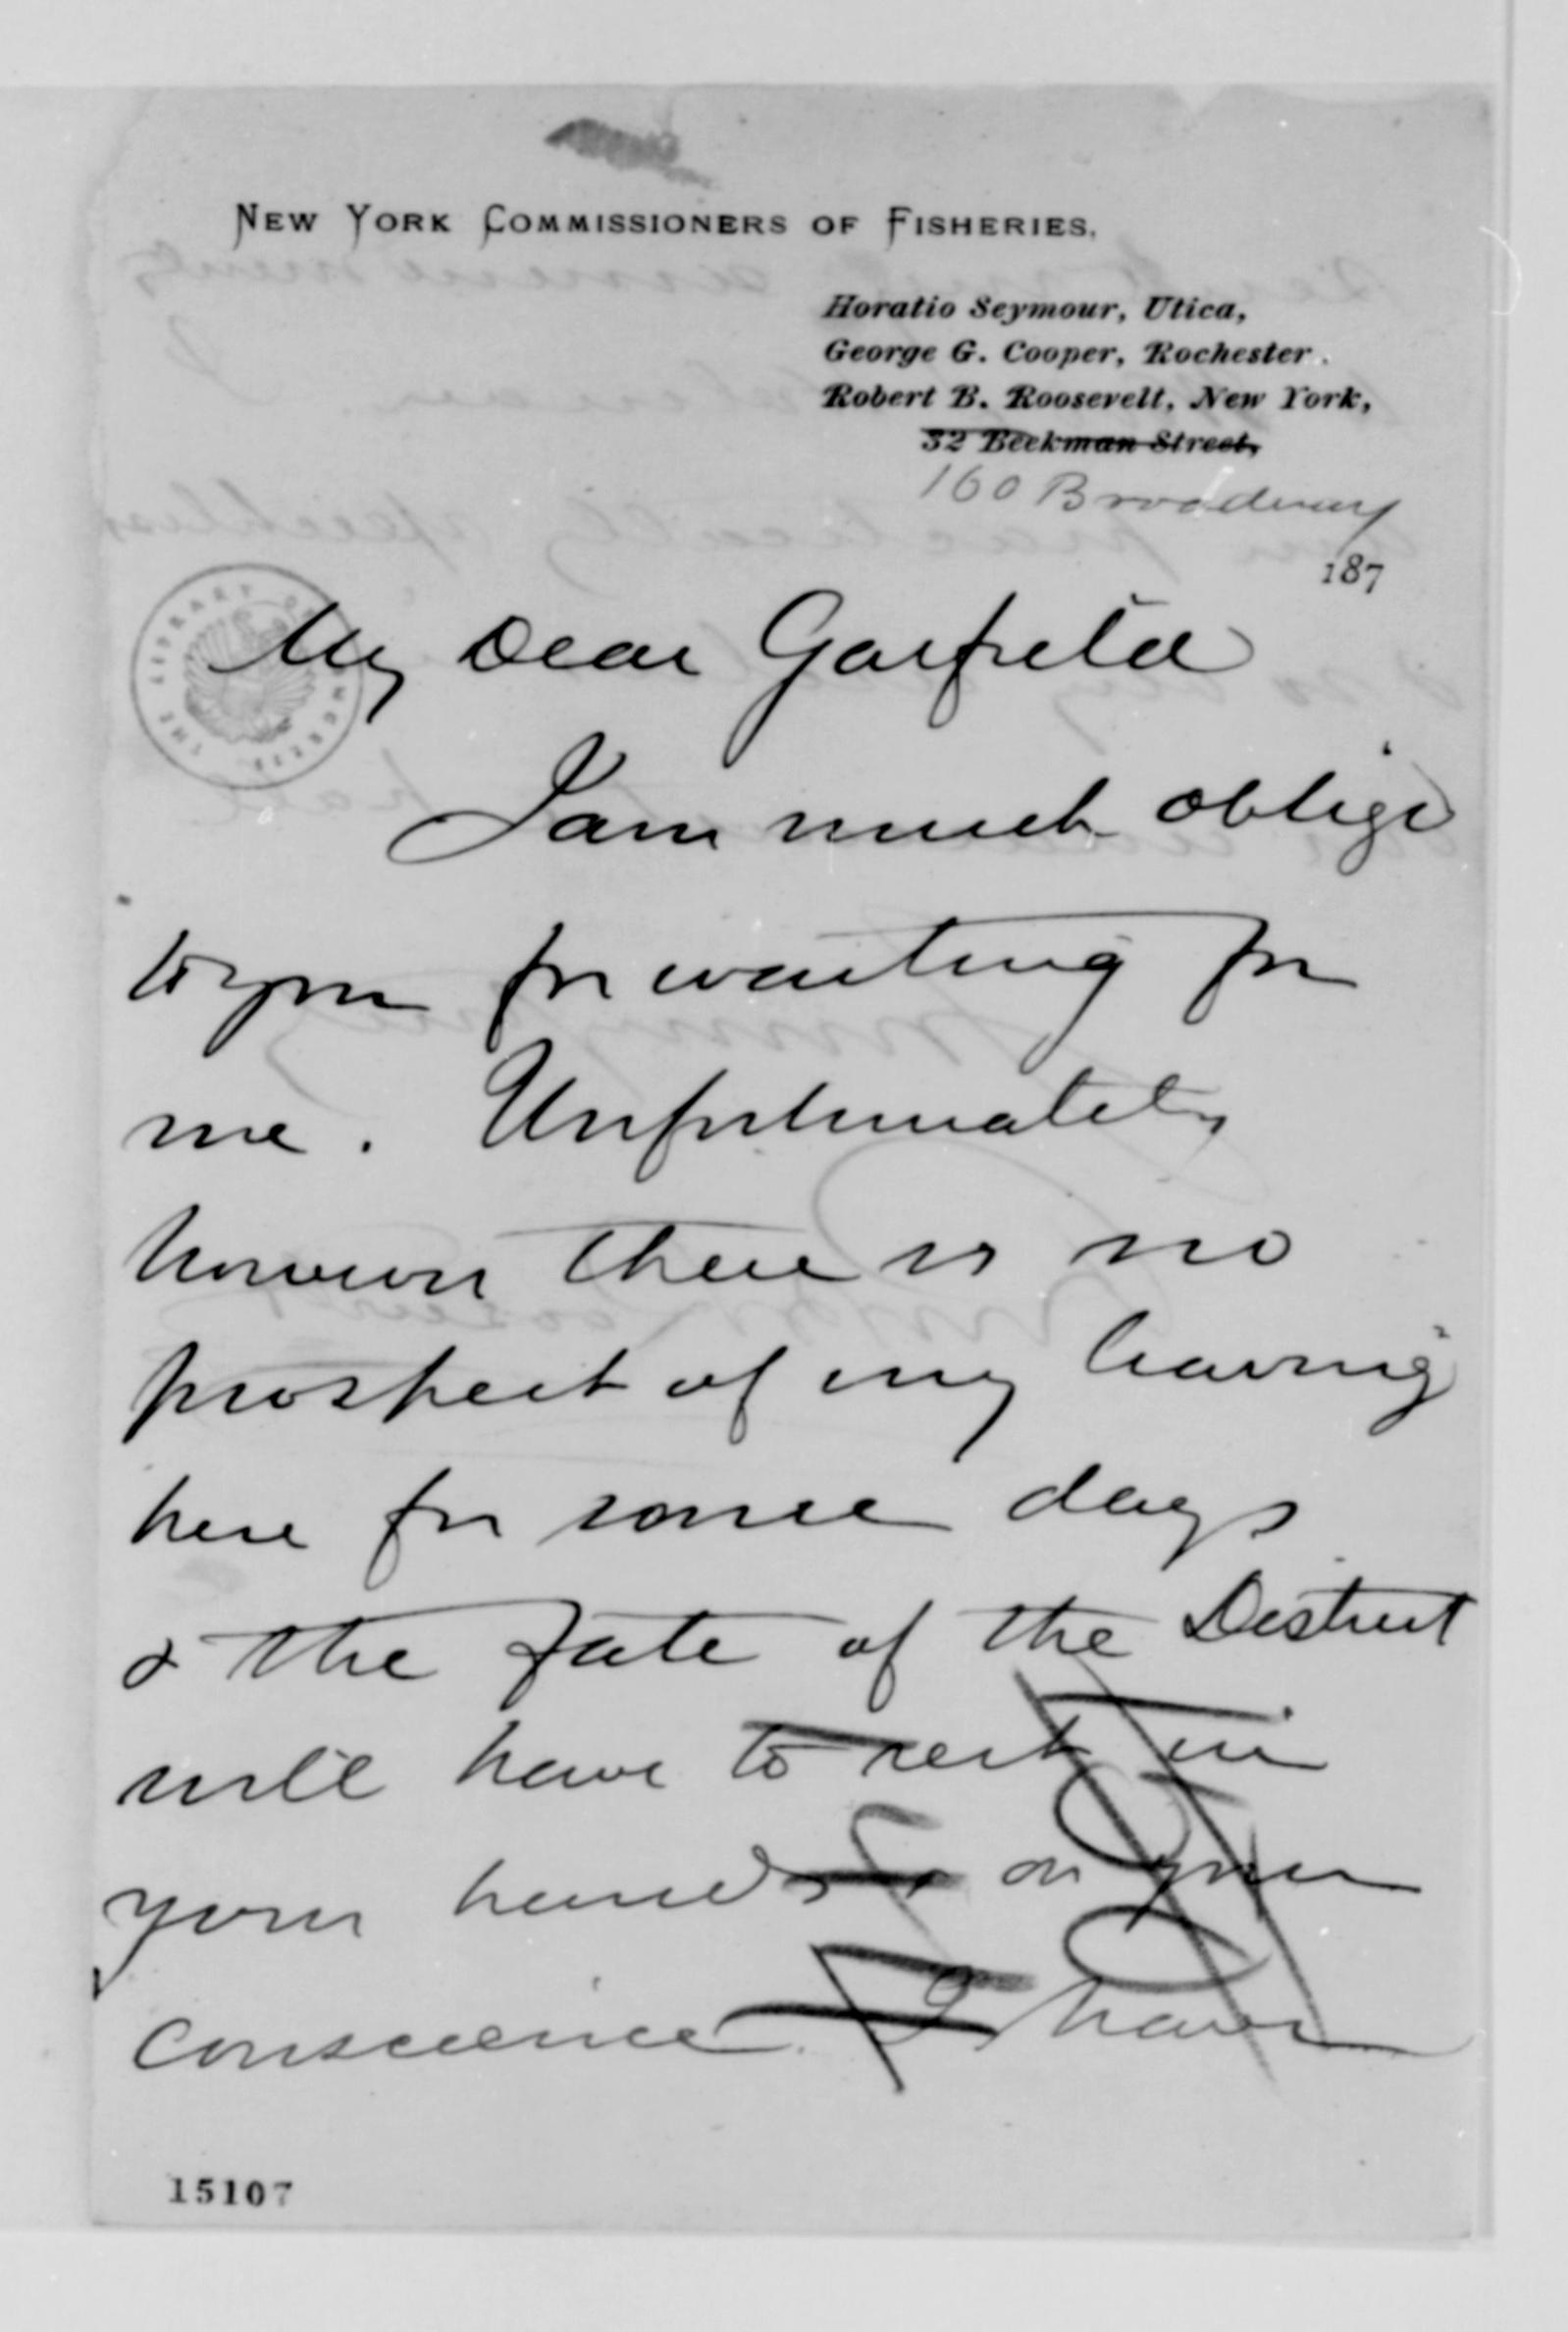 NEW YORK COMMISSIONERS OF FISHERIES.
Horatio Seymour, Utica,
George G. Cooper, Rochester.
Robert B. Roosevelt, New York,
32 Beekman Street,
160 Broadway
187
THE LIBRARY OF CONGRESS
My Dear Garfield
I am much oblige
to you for waiting for
me. Unfortunately
however there is no
prospect of my leaving
here for some days
& the fate of the District
will have to rest in
your hands or your
conscience. I have
15107